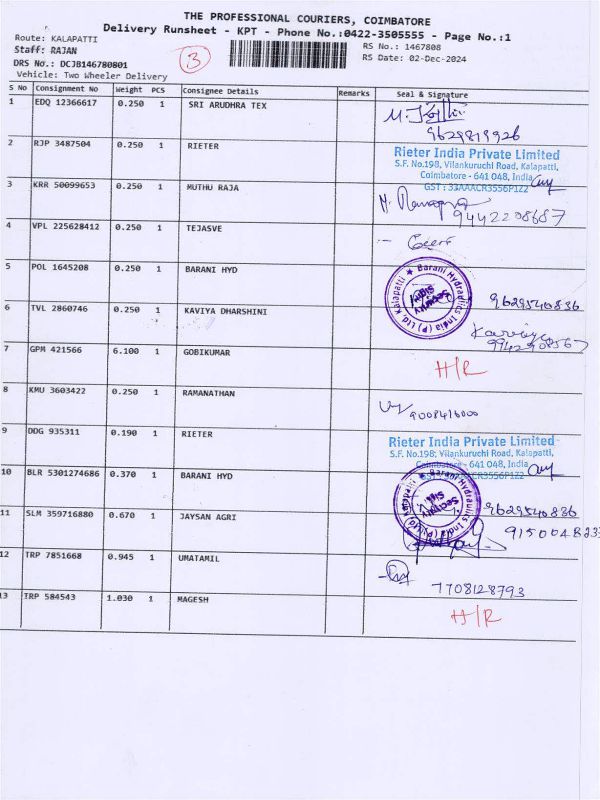 THE PROFESSIONAL COURIERS, COIMBATORE
Delivery Runsheet - KPT - Phone No.:0422-3505555 - Page No.:1
Route: KALAPATTI
Staff: RAJAN
DRS No.: DCJB146780801
Vehicle: Two Wheeler Delivery
3
RS No.: 1467808
RS Date: 02-Dec-2024
S No Consignment No Weight PCS Consignee Details Remarks Seal & Signature
1 EDQ 12366617 0.250 1 SRI ARUDHRA TEX
9629819926
2 RJP 3487504 0.250 1 RIETER
Rieter India Private Limited
S.F. No.198, Vilankuruchi Road, Kalapatti,
Coimbatore - 641 048, India
GST : 33AAACR3556P1Z2
3 KRR 50099653 0.250 1 MUTHU RAJA
9442208687
4 VPL 225628412 0.250 1 TEJASVE
5 POL 1645208 0.250 1 BARANI HYD
Barani Hydraulics India (P) Ltd. Kalapatti
Security
Sign
9629540836
6 TVL 2860746 0.250 1 KAVIYA DHARSHINI
9942908567
7 GPM 421566 6.100 1 GOBIKUMAR
H/R
8 KMU 3603422 0.250 1 RAMANATHAN
9008416000
9 DDG 935311 0.190 1 RIETER
Rieter India Private Limited
S.F. No.198, Vilankuruchi Road, Kalapatti,
Coimbatore - 641 048, India
10 BLR 5301274686 0.370 1 BARANI HYD
Barani Hydraulics India (P) Ltd. Kalapatti
Security
Sign
9629540836
11 SLM 359716880 0.670 1 JAYSAN AGRI
12 TRP 7851668 0.945 1 UMATAMIL
7708128793
13 TRP 584543 1.030 1 MAGESH
H/R